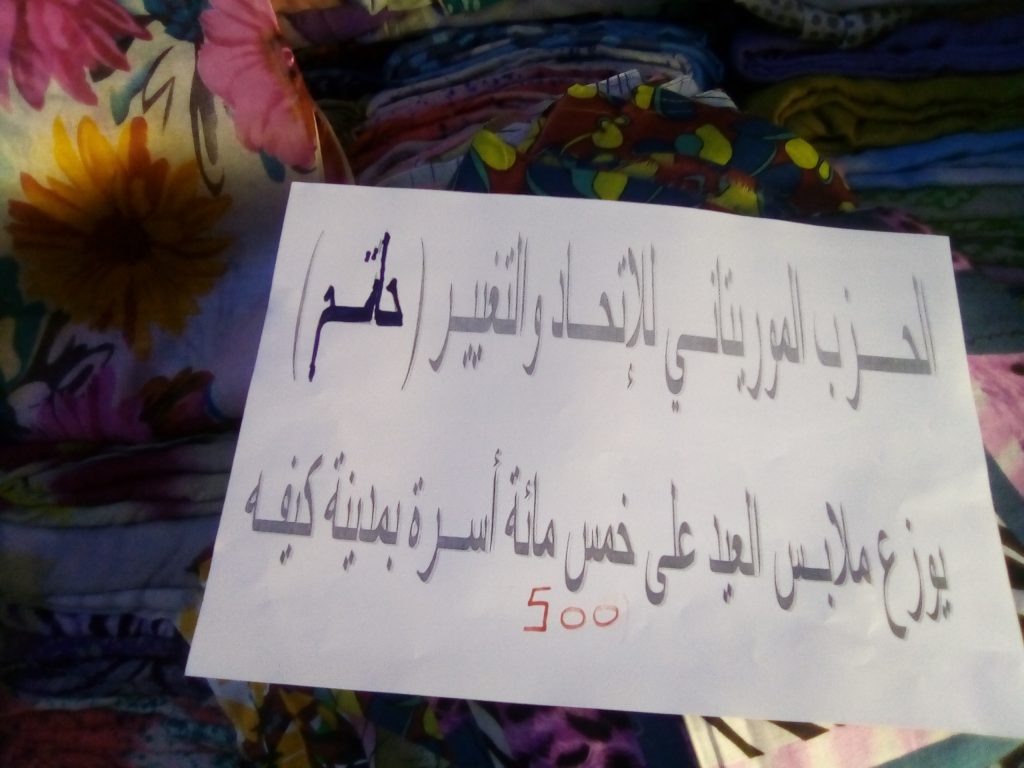 الحزب الموريتاني للإتحاد والتغيير (حاتم)
يوزع ملابس العيد على خمس مائة أسرة بمدينة كيفه
500